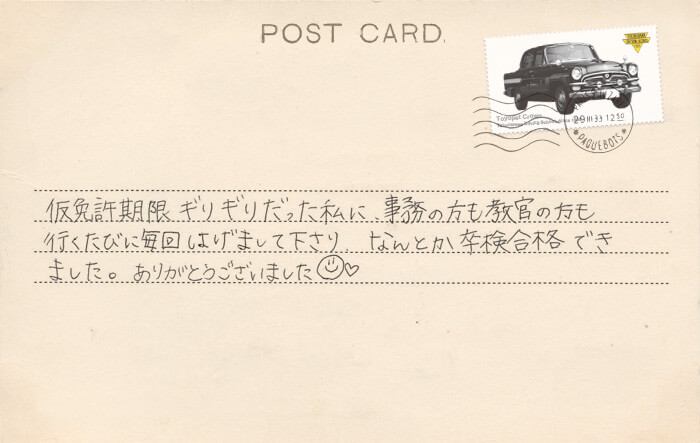 POST CARD.
Toyopet Crown
29 III 33 12 50
PAQUEBOTS
仮免許期限ギリギリだった私に、事務の方も教官の方も
行くたびに毎回はげまして下さり、なんとか卒検合格でき
ました。ありがとうございました